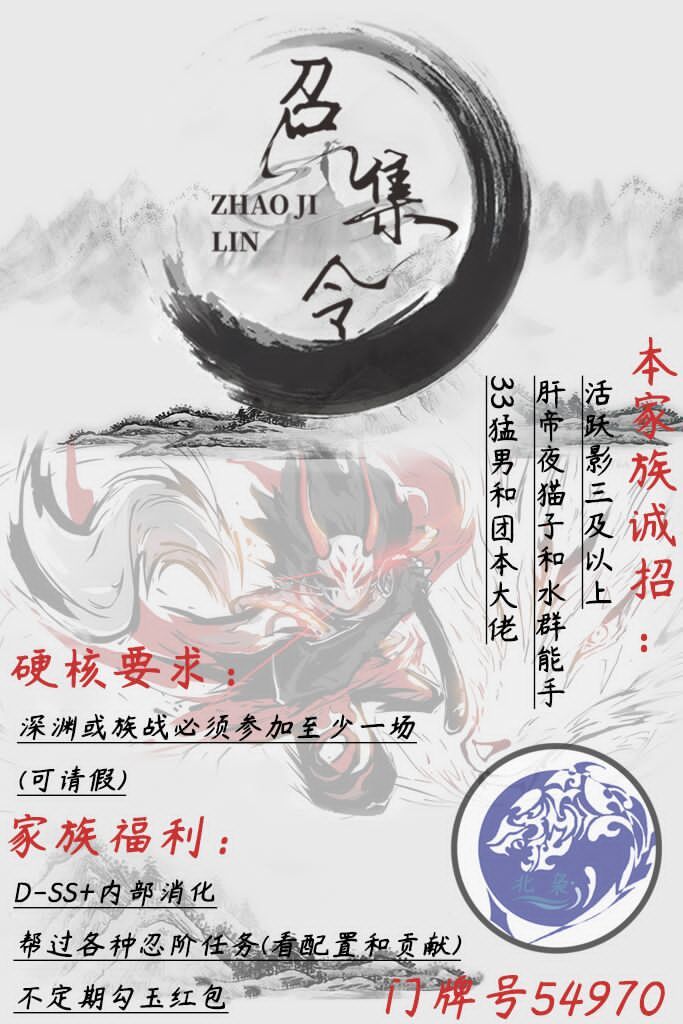 召集令
ZHAO JI
LIN
本家族诚招：
活跃影三及以上
肝帝夜猫子和水群能手
33猛男和团本大佬
硬核要求：
深渊或族战必须参加至少一场
(可请假)
家族福利：
D-SS+内部消化
帮过各种忍阶任务(看配置和贡献)
不定期勾玉红包
北枭
门牌号54970